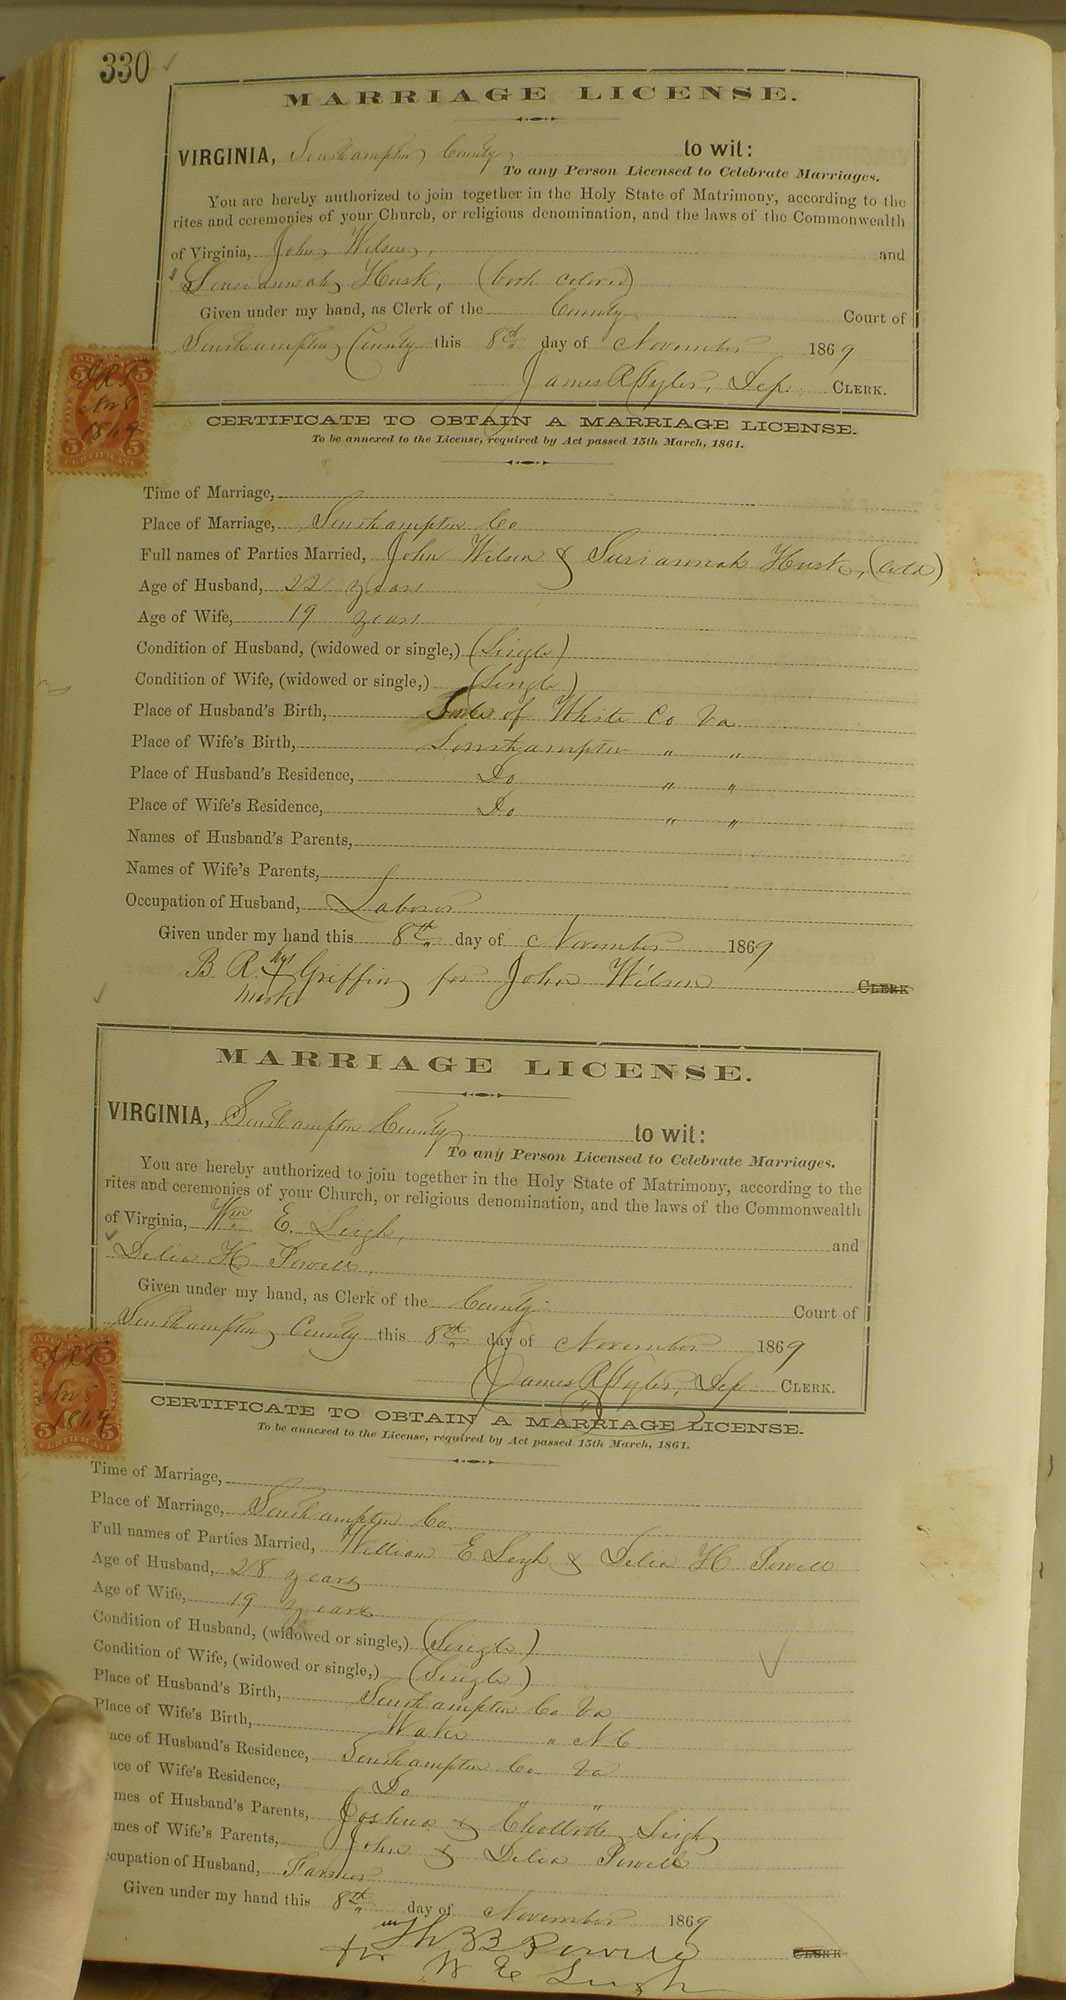 330
MARRIAGE LICENSE.
VIRGINIA, Southampton County to wit:
To any Person Licensed to Celebrate Marriages.
You are hereby authorized to join together in the Holy State of Matrimony, according to the
rites and ceremonies of your Church, or religious denomination, and the laws of the Commonwealth
of Virginia, John Wilson, and
Susiannah Husk, (both colored)
Given under my hand, as Clerk of the County Court of
Southampton County this 8th day of November 1869
James R Tyler, Dep. CLERK.
5 5
JRT
Nov 8
1869
5 5
CERTIFICATE
CERTIFICATE TO OBTAIN A MARRIAGE LICENSE.
To be annexed to the License, required by Act passed 15th March, 1861.
Time of Marriage,
Place of Marriage, Southampton Co
Full names of Parties Married, John Wilson & Susiannah Husk, (Cold)
Age of Husband, 22 years
Age of Wife, 19 years
Condition of Husband, (widowed or single,) (Single)
Condition of Wife, (widowed or single,) (Single)
Place of Husband's Birth, Isle of White Co Va
Place of Wife's Birth, Southampton " "
Place of Husband's Residence, Do " "
Place of Wife's Residence, Do " "
Names of Husband's Parents,
Names of Wife's Parents,
Occupation of Husband, Laborer
Given under my hand this 8th day of November 1869
B. R. his Griffin for John Wilson CLERK
mark
MARRIAGE LICENSE.
VIRGINIA, Southampton County to wit:
To any Person Licensed to Celebrate Marriages.
You are hereby authorized to join together in the Holy State of Matrimony, according to the
rites and ceremonies of your Church, or religious denomination, and the laws of the Commonwealth
of Virginia, Wm E. Leigh, and
Delia H Powell,
Given under my hand, as Clerk of the County Court of
Southampton County this 8th day of November 1869
James R Tyler, Dep CLERK.
5 5
JRT
Nov 8
1869
5 5
CERTIFICATE
CERTIFICATE TO OBTAIN A MARRIAGE LICENSE.
To be annexed to the License, required by Act passed 15th March, 1861.
Time of Marriage,
Place of Marriage, Southampton Co.
Full names of Parties Married, William E Leigh & Delia H Powell
Age of Husband, 28 years
Age of Wife, 19 years
Condition of Husband, (widowed or single,) (Single)
Condition of Wife, (widowed or single,) (Single)
Place of Husband's Birth, Southampton Co Va
Place of Wife's Birth, Wake " N.C.
ace of Husband's Residence, Southampton Co Va
ace of Wife's Residence, Do " "
mes of Husband's Parents, Joshua & Leigh
mes of Wife's Parents, John & Delia Powell
ccupation of Husband, Farmer
Given under my hand this 8th day of November 1869
B B Powell CLERK
for W E Leigh